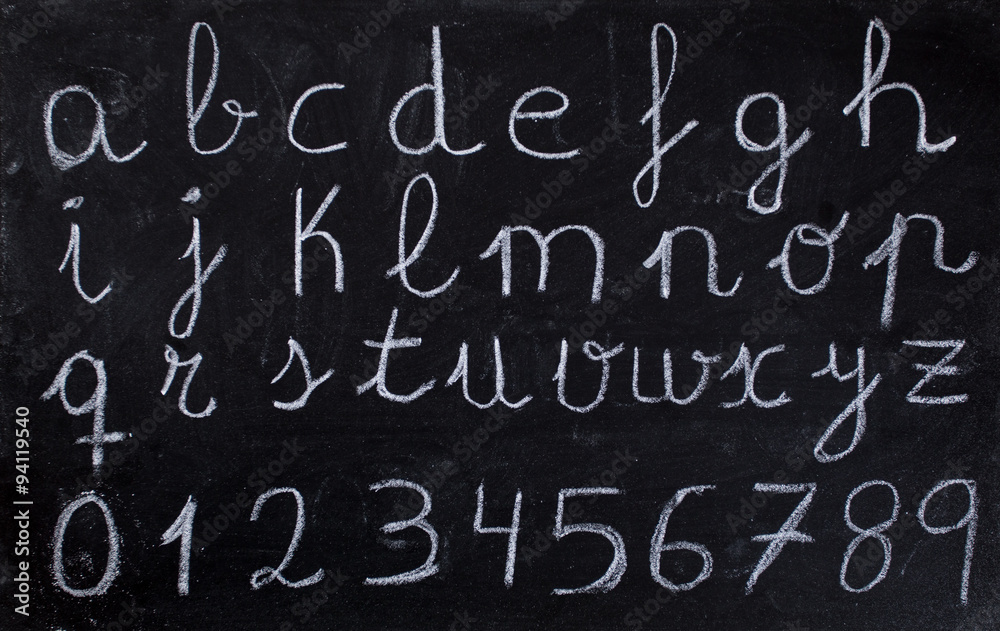 a b c d e f g h
i j k l m n o p
q r s t u v w x y z
0 1 2 3 4 5 6 7 8 9
Adobe Stock | #94119540